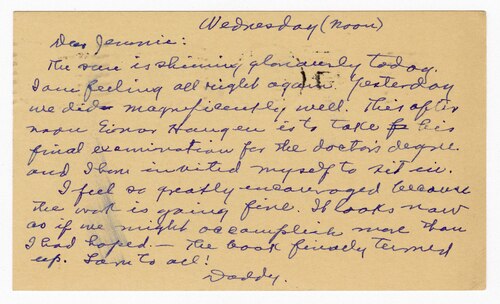 Wednesday (noon)
Dear Jennie:
The sun is shining gloriously today.
I am feeling all right again. Yesterday
we did magnificently well. This after
noon Einar Haugen is to take his
final examination for the doctor's degree
and I have invited myself to sit in.
I feel so greatly encouraged because
the work is going fine. It looks now
as if we might accomplish more than
I had hoped. — The book finally turned
up. Love to all!
Daddy.